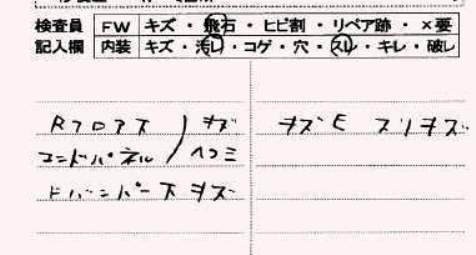 検査員 FW キズ・飛石・ヒビ割・リペア跡・×要
記入欄 内装 キズ・汚レ・コゲ・穴・スレ・キレ・破レ
Rフロアス キズ
エンドパネル ヘコミ
キズE スリキズ
ドバンパー下キズ